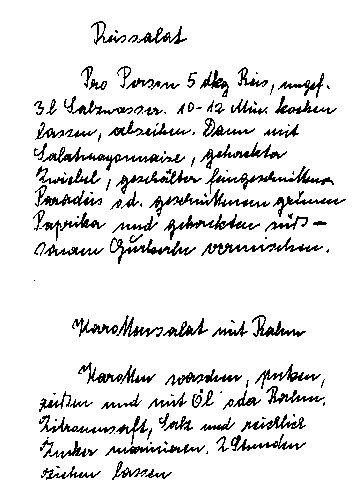 Reissalat
Pro Person 5 dkg Reis, ungef.
3 l Salzwasser. 10-12 Min. kochen
lassen, abseihen. Dann mit
Salatmayonnaise, gehackter
Zwiebel, geschälter feingeschnittener
Paradeis od. geschnittenem grünen
Paprika und gehackten süß-
sauren Gurkerln vermischen.
Karottensalat mit Rahm
Karotten waschen, putzen,
reißen und mit Öl oder Rahm,
Zitronensaft, Salz und reichlich
Zucker marinieren. 2 Stunden
ziehen lassen